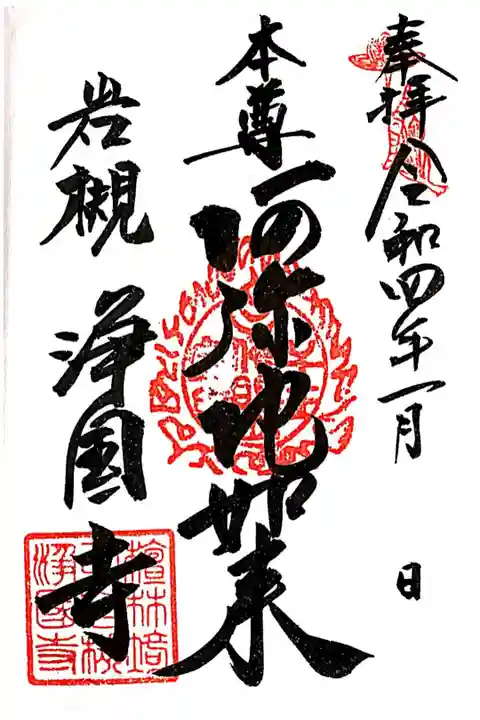 奉拝 令和四年一月 日
本尊 阿弥陀如来
岩槻 浄国寺